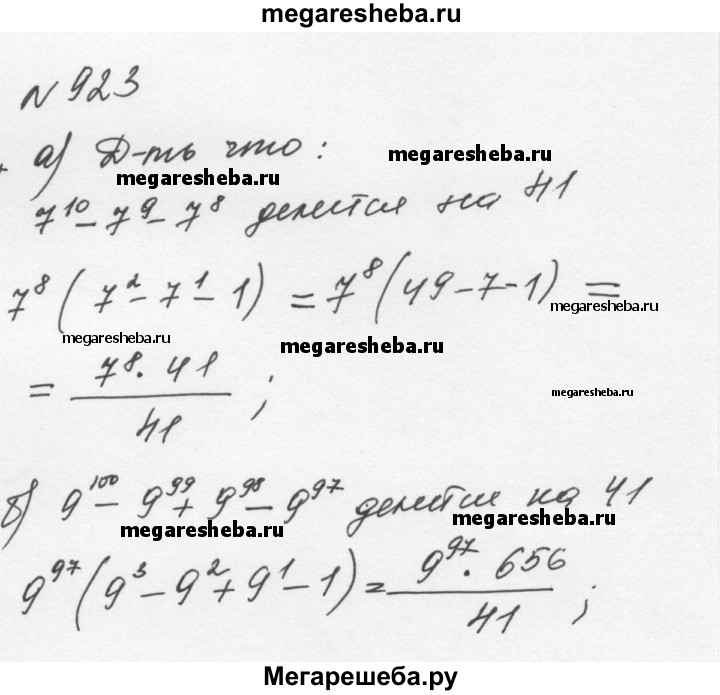 megaresheba.ru
N 923
а) Д-ть что: megaresheba.ru
megaresheba.ru
7^10 - 7^9 - 7^8 делится на 41
7^8 (7^2 - 7^1 - 1) = 7^8 (49 - 7 - 1) =
megaresheba.ru
megaresheba.ru megaresheba.ru
= 7^8 · 41 / 41 ; megaresheba.ru
б) 9^100 - 9^99 + 9^98 - 9^97 делится на 41
megaresheba.ru megaresheba.ru
9^97 (9^3 - 9^2 + 9^1 - 1) = 9^97 · 656 / 41 ;
Мегарешеба.ру